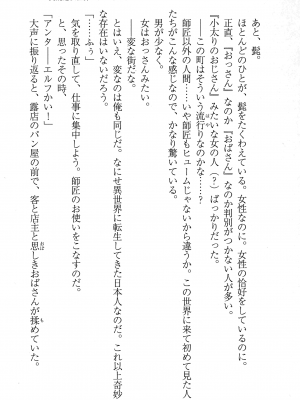 あと、髭。
ほとんどのひとが、髭をたくわえている。女性なのに。女性の恰好をしているのに。
正直、『おっさん』なのか『おばさん』なのか判別がつかない人が多い。
『小太りのおじさん』みたいな女の人（？）ばっかりだった。
――この町はそういう流行りなのかな……？
師匠以外の人間……いや師匠もヒュームじゃないから違うか。この世界に来て初めて見た人
たちがこんな感じなので、かなり驚いている。
男が少なく。
女はおっさんみたい。
――変な街だな。
とはいえ、変なのは俺も同じだ。なにせ異世界に転生してきた日本人なのだ。これ以上奇妙
な存在はいないだろう。
「……ふぅ」
気を取り直して、仕事に集中しよう。師匠のお使いをこなすのだ。
と、思ったその時、
「アンター―エルフかい！」
大声に振り返ると、露店のパン屋の前で、客と店主と思しきおばさんが揉めていた。